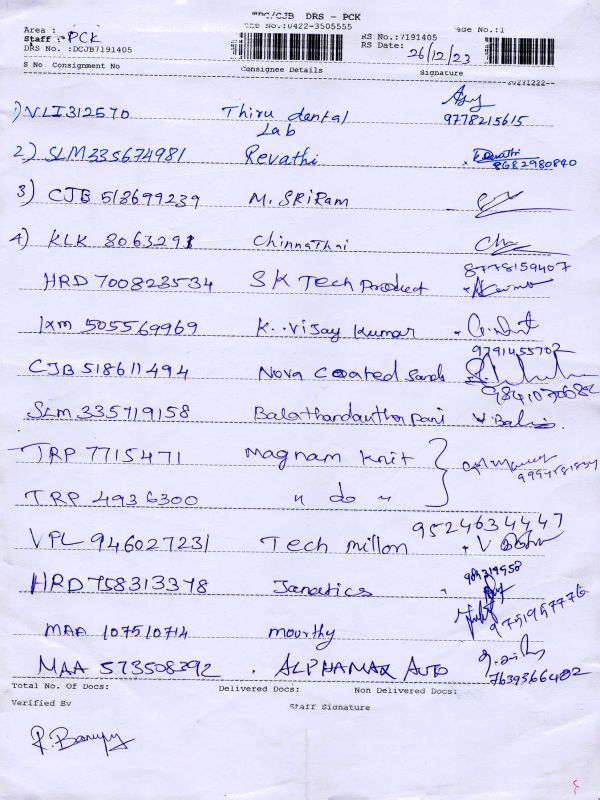 TPC/CJB DRS - PCK
The No.:0422-3505555
Page No.:1
Area :
Staff : PCK
RS No.:7191405
DRS No. :DCJB7191405
RS Date: 26/12/23
S No Consignment No Consignee Details Signature
20231222--
1) VLI312570 Thiru dental Lab 9778215615
2) SLM335674981 Revathi Revathi 8682980840
3) CJB 518699239 M. SRiRam
4) KLK 8063291 Chinnathai
8778159407
HRD 700823534 SK Tech Product
Ixm 505569969 K..Vijay Kumar
9791455702
CJB 518611494 Nova Coated Sands
SLM 335719158 Balathandauthapani V.Bal
TRP 7715471 Magnam Knit
TRP 4936300 " do "
9524634447
VPL 946027231 Tech millon
HRD 758313378 Janatics
MAA 107510714 moorthy 9751957776
MAA 573508392 . ALPHAMAX AUTO
7639366402
Total No. Of Docs: Delivered Docs: Non Delivered Docs:
Verified By Staff Signature